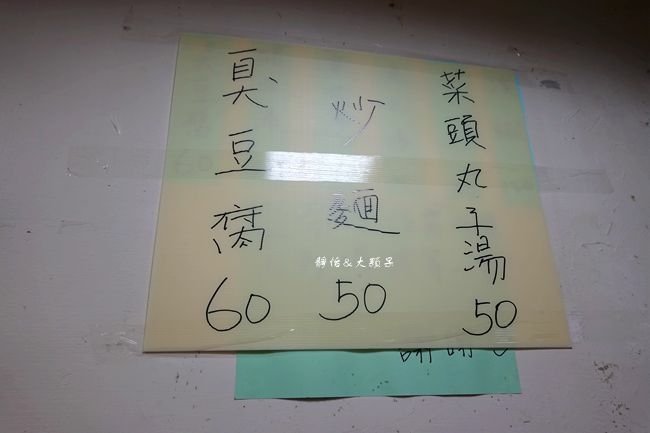 菜頭丸子湯 50
炒麵 50
臭豆腐 60
靜怡&大顆呆
謝謝